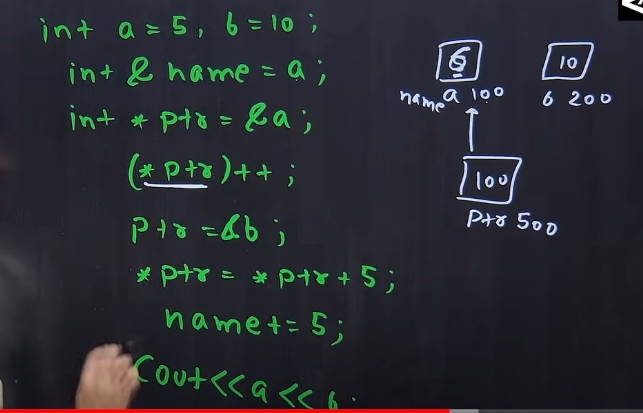 int a = 5, b = 10 ;
int & name = a ;
int * ptr = &a ;
(* ptr)++ ;
ptr = &b ;
*ptr = *ptr + 5 ;
name += 5 ;
Cout << a << b ;
6
name a 100
10
b 200
100
ptr 500